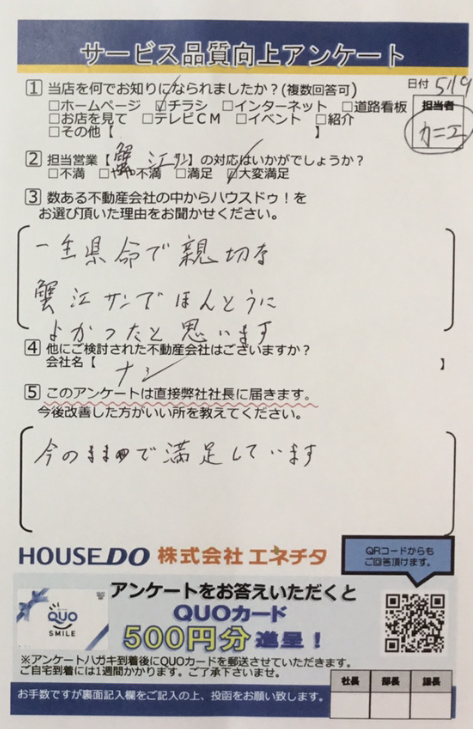 サービス品質向上アンケート
1 当店を何でお知りになられましたか？(複数回答可)
日付 5/9
□ホームページ ☑チラシ □インターネット □道路看板
担当者
□お店を見て □テレビCM □イベント □紹介
カニエ
□その他【 】
2 担当営業【蟹江サン】の対応はいかがでしょうか？
□不満 □やや不満 □満足 ☑大変満足
3 数ある不動産会社の中からハウスドゥ！を
お選び頂いた理由をお聞かせください。
一生県命で親切な
蟹江サンでほんとうに
よかつたと思います
4 他にご検討された不動産会社はございますか？
会社名【 ナシ 】
5 このアンケートは直接弊社社長に届きます。
今後改善した方がいい所を教えてください。
今のままで満足しています
HOUSE DO 株式会社 エネチタ
QRコードからも
ご回答頂けます。
アンケートをお答えいただくと
QUOカード
500円分 進呈！
QUO
SMILE
※アンケートハガキ到着後にQUOカードを郵送させていただきます。
ご自宅到着には1週間かかります。ご了承下さいませ。
社長 部長 課長
お手数ですが裏面記入欄をご記入の上、投函をお願い致します。